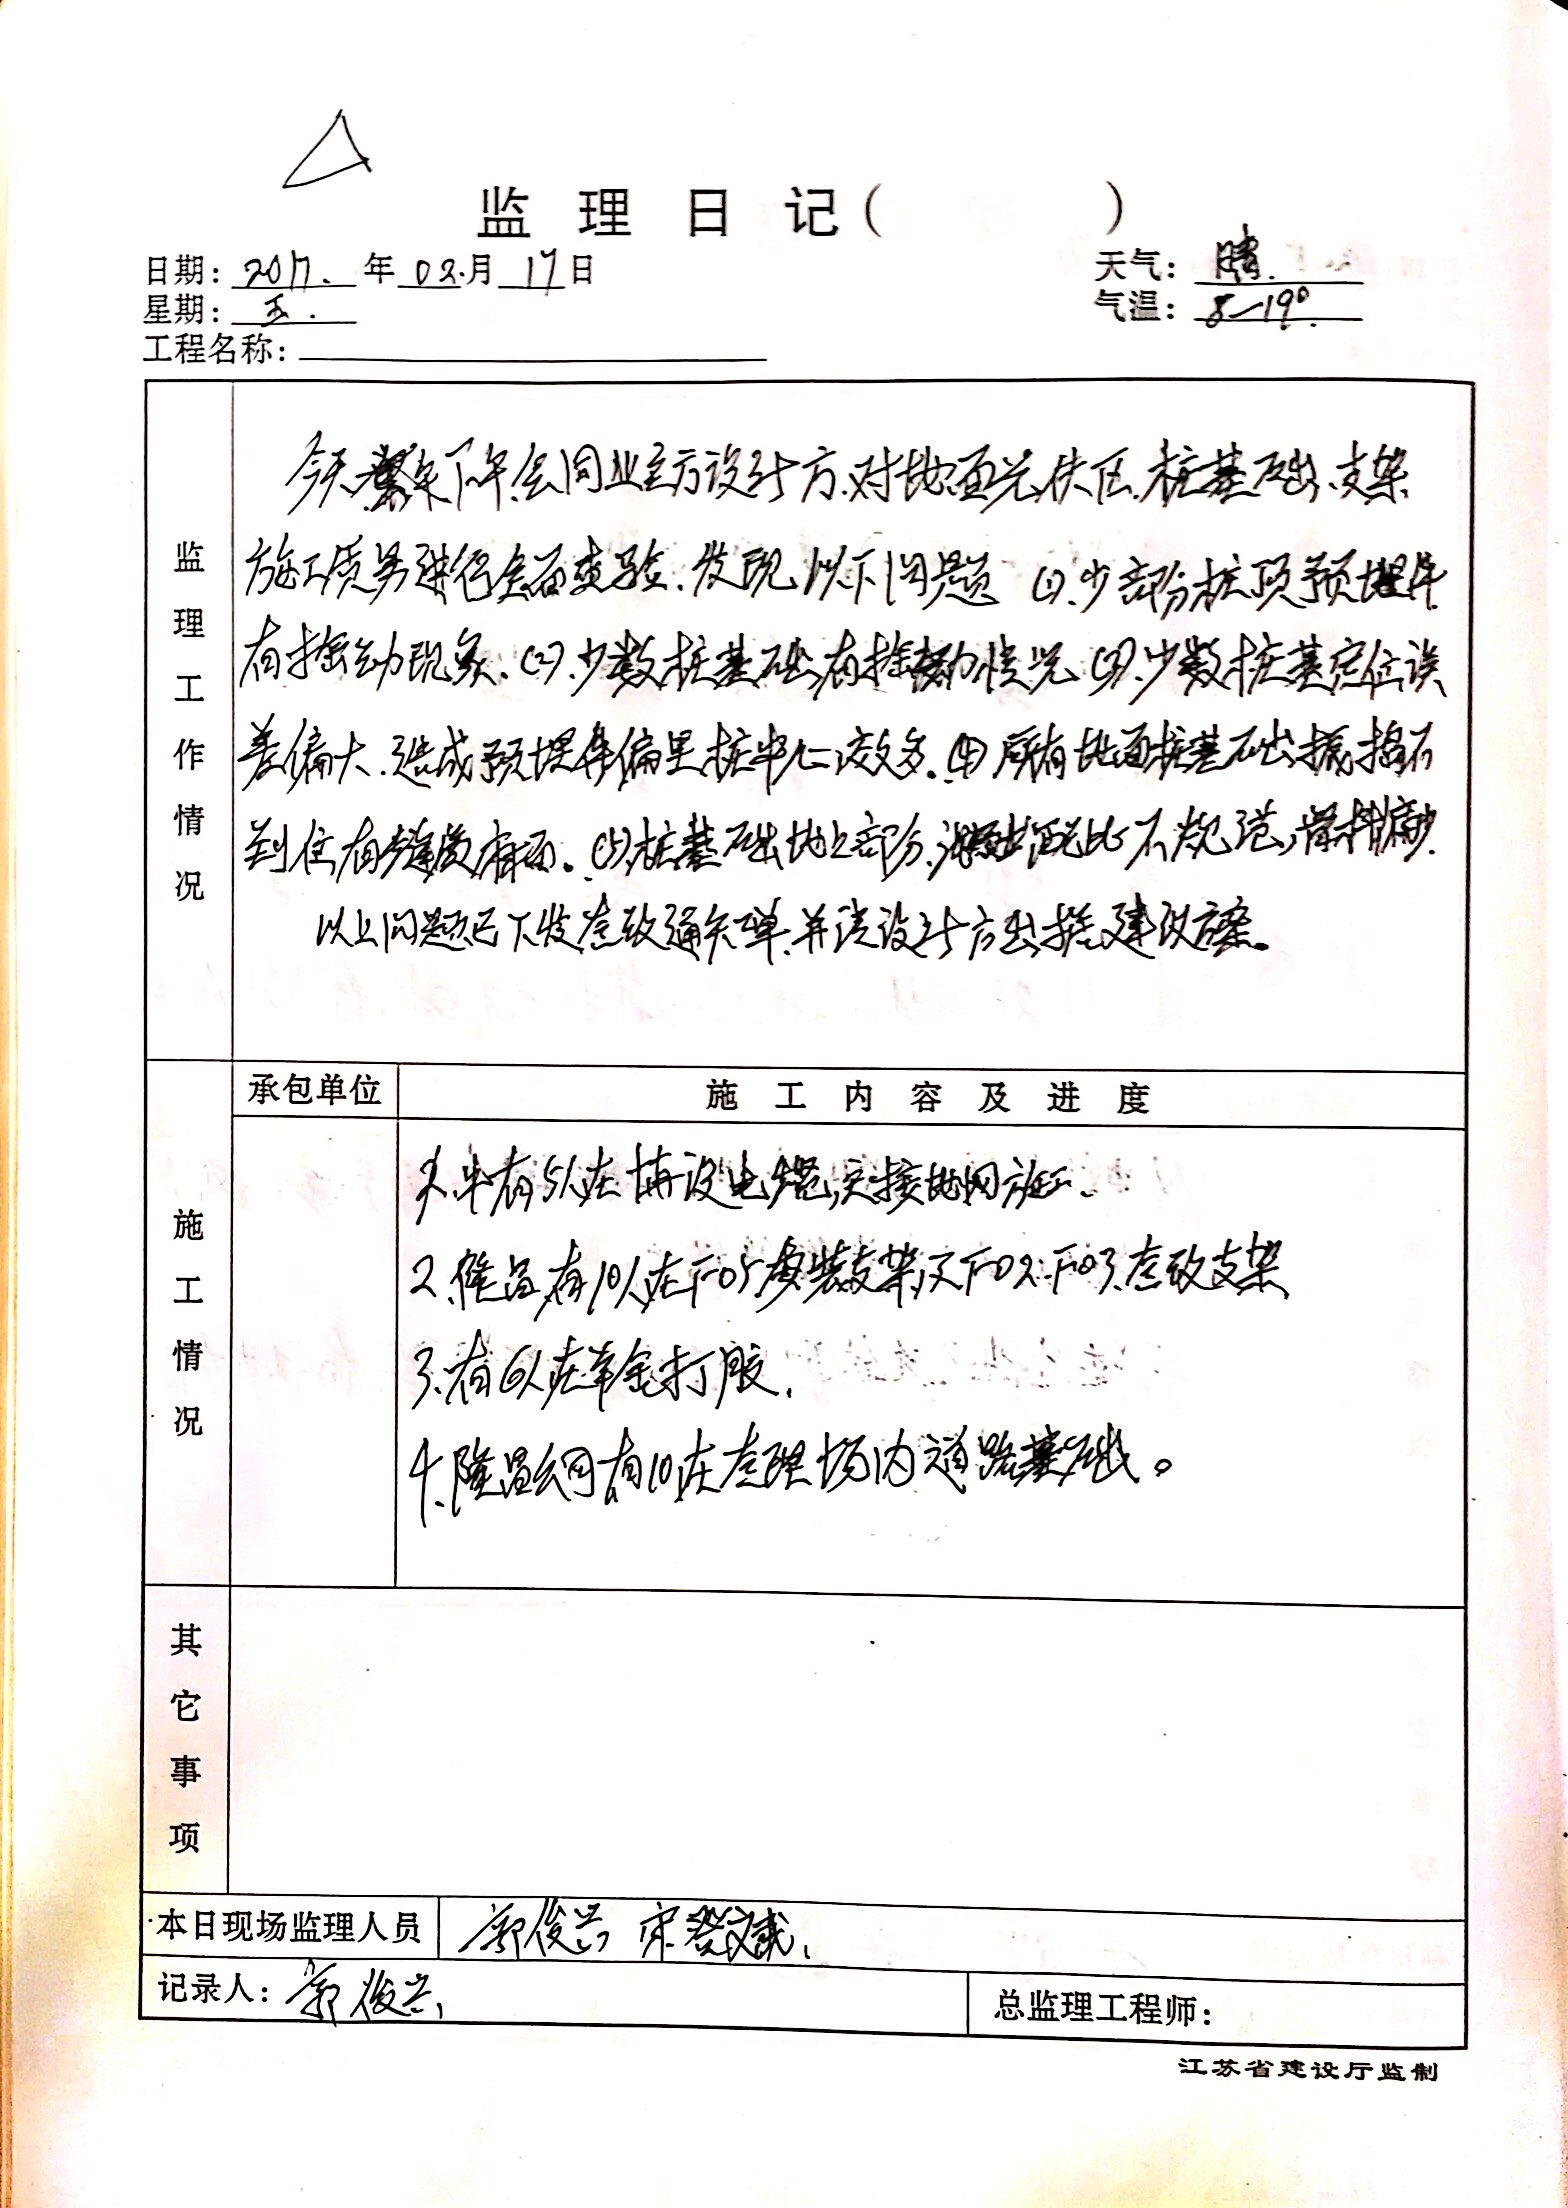 监理日记（ ）
日期：2017.年02.月17日 天气：晴.
星期：五. 气温：8-19°.
工程名称：
监理工作情况
今天下午会同业主方设计方.对地面光伏区.桩基础.支架
施工质量进行全面查验.发现以下问题 (1).少部分桩顶预埋件
有摇动现象.(2).少数桩基础有摇动情况(3).少数桩基定位误
差偏大.造成预埋件偏里桩中心较多.(4)所有地面桩基础振捣不
到位有蜂窝麻面。(5)桩基础地上部分配比不规范,骨料偏少.
以上问题已下发查改通知单.并请设计方出接建议方案。
施工情况
承包单位 施工内容及进度
有5人在 设电缆,及接地网施工.
2. 有10人在F05安装支架,及F02.F03.查改支架
3.有6人在 打胶.
4.隆昌 有10在查理场内道路基础。
其它事项
本日现场监理人员 郭俊兴 宋登斌.
记录人：郭俊兴. 总监理工程师：
江苏省建设厅监制